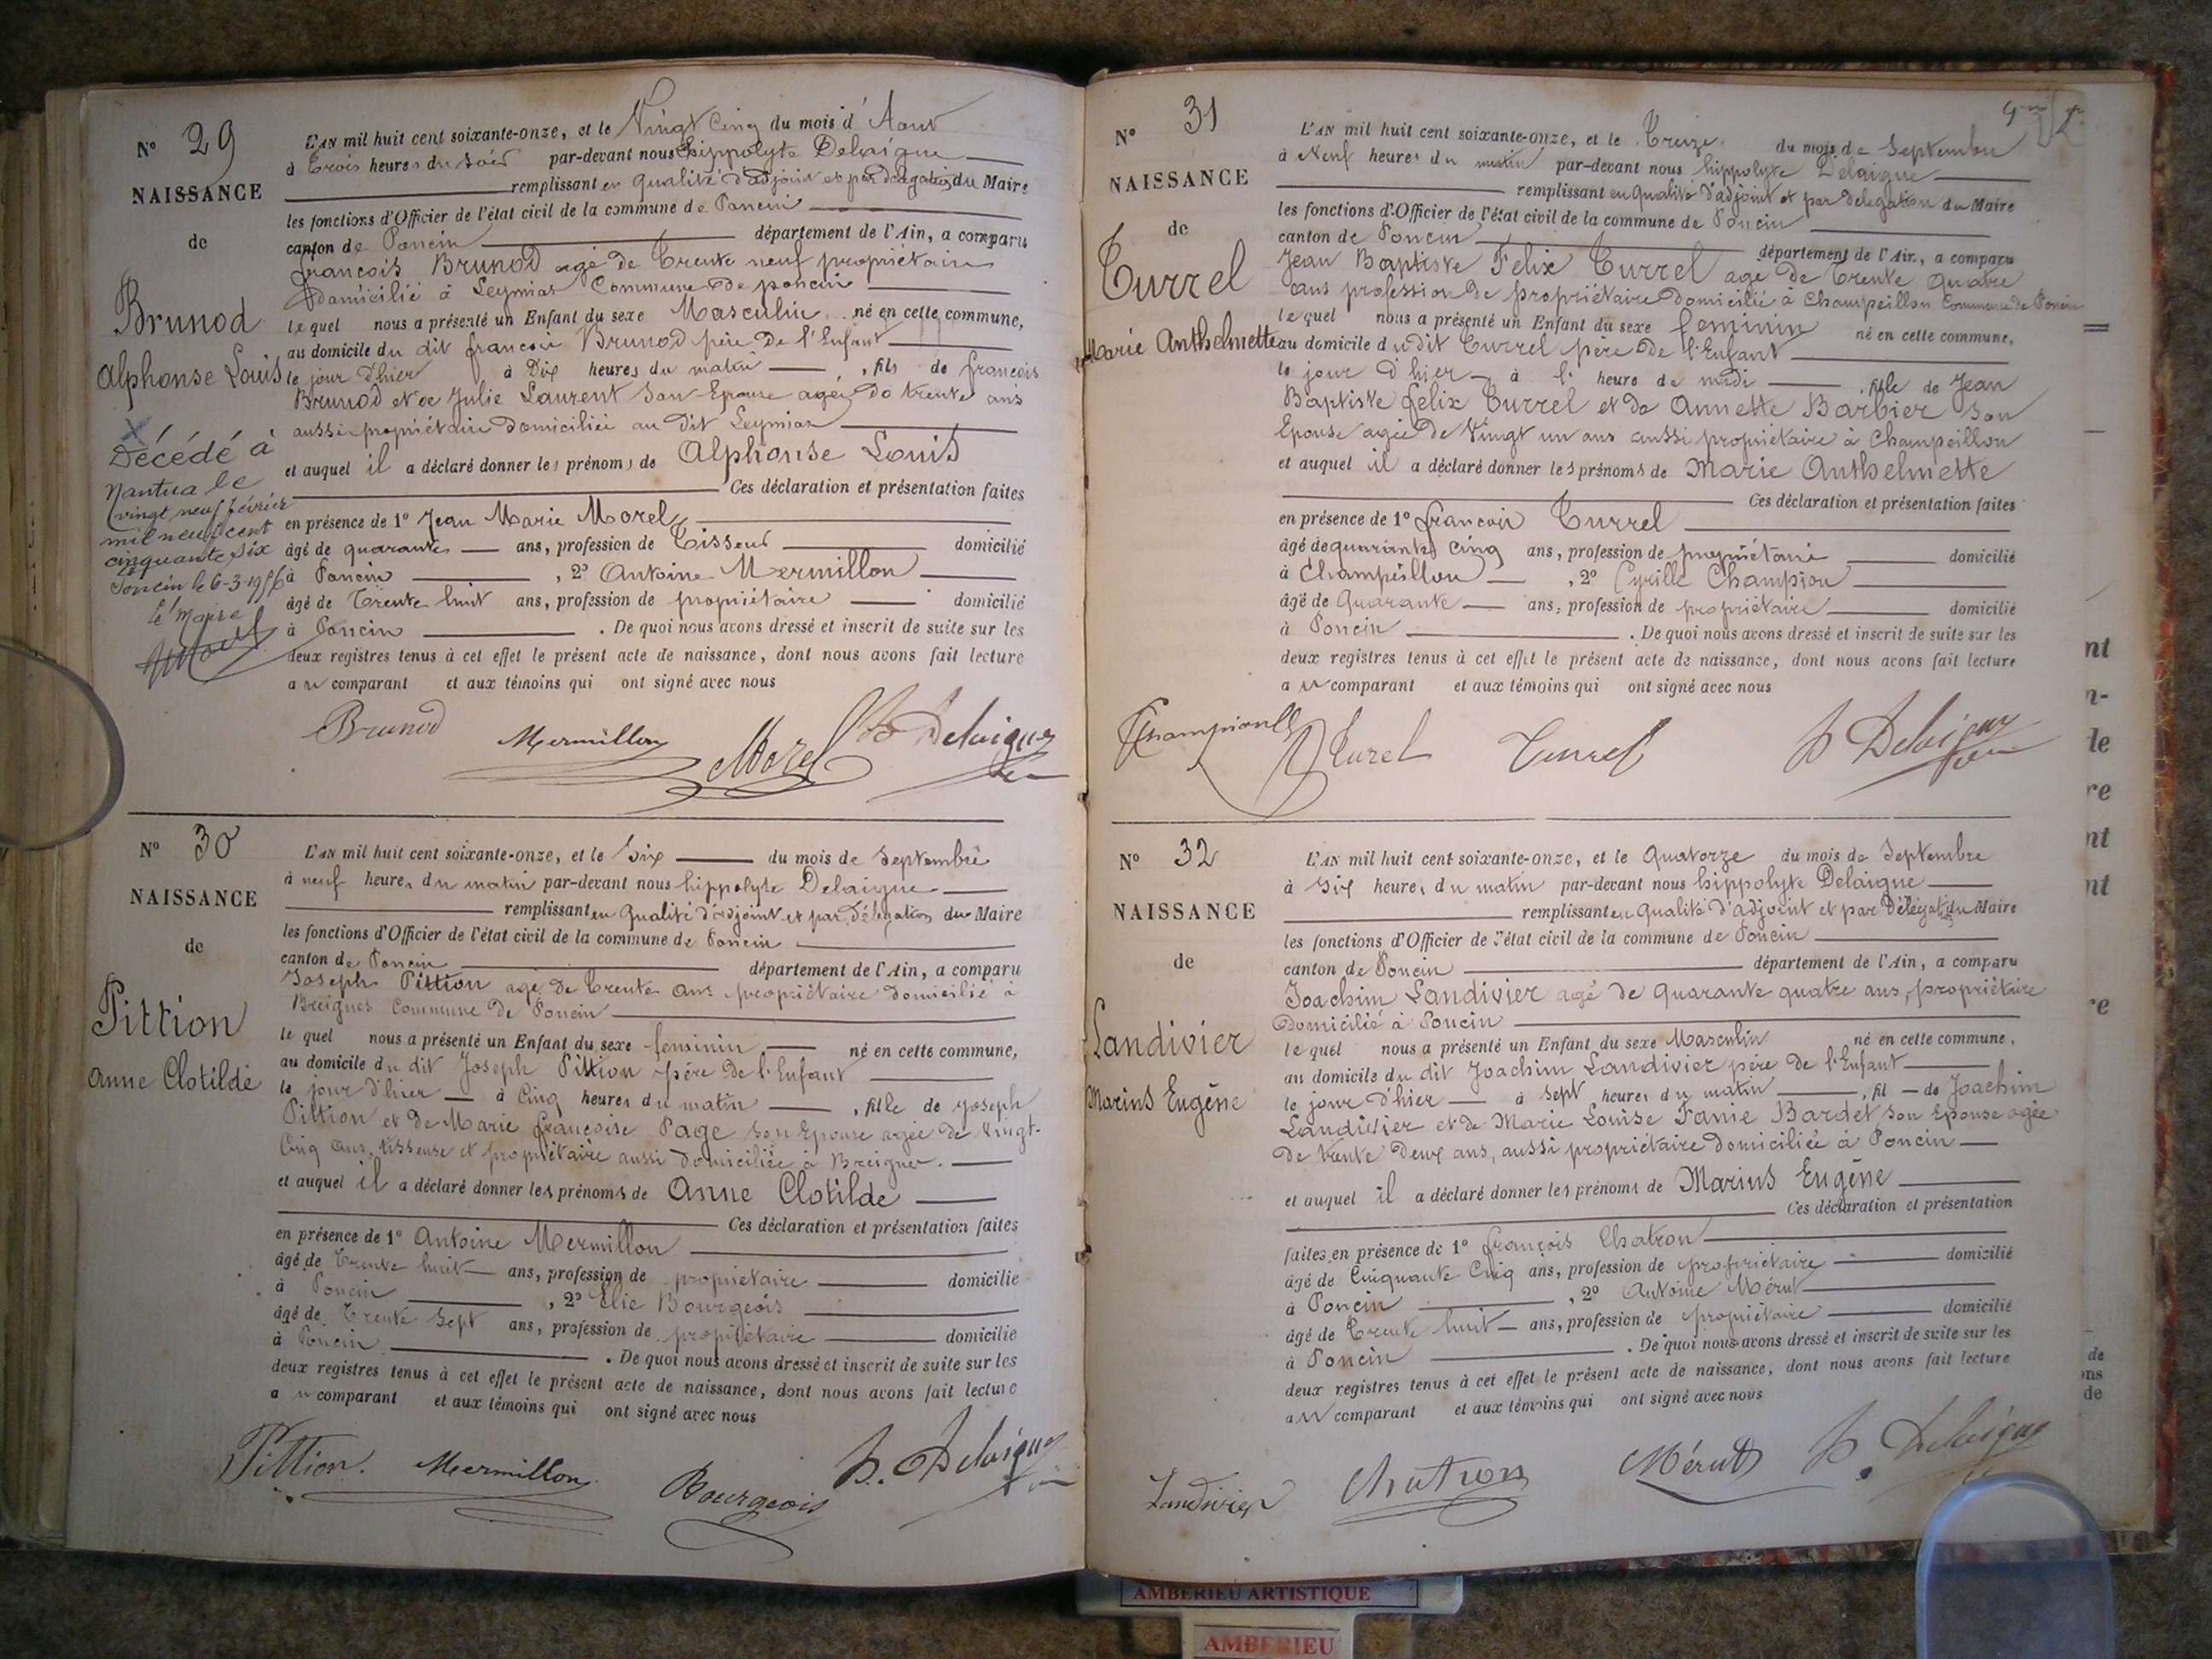 N° 29
NAISSANCE
de
Brunod
Alphonse Louis
Décédé à
Nantua le
vingt neuf février
mil neuf cent
cinquante six
Poncin le 6-3-1956
Le Maire
L'AN mil huit cent soixante-onze, et le Vingt Cinq du mois d'Aout
à trois heures du soir par-devant nous hippolyte Delaigue
remplissant en qualité d'adjoint et par délégation du Maire
les fonctions d'Officier de l'état civil de la commune de Poncin
canton de Poncin département de l'Ain, a comparu
francois Brunod agé de trente neuf propriétaire
domicilié à Leymiat Commune de poncin
lequel nous a présenté un Enfant du sexe Masculin né en cette commune,
au domicile du dit francois Brunod père de l'Enfant
le jour d'hier à Dix heures du matin, fils de francois
Brunod et de Julie Laurent son Epouse agée de trente ans
aussi propriétaire domiciliée au dit Leymiat
et auquel il a déclaré donner les prénoms de Alphonse Louis
Ces déclaration et présentation faites
en présence de 1° Jean Marie Morel
âgé de quarante ans, profession de Tisseur domicilié
à Poncin, 2° Antoine Mermillon
âgé de Trente huit ans, profession de propriétaire domicilié
à Poncin. De quoi nous avons dressé et inscrit de suite sur les
deux registres tenus à cet effet le présent acte de naissance, dont nous avons fait lecture
au comparant et aux témoins qui ont signé avec nous
Brunod Mermillon Morel h Delaigue
N° 30
NAISSANCE
de
Pittion
Anne Clotilde
L'AN mil huit cent soixante-onze, et le Six du mois de Septembre
à neuf heures du matin par-devant nous hippolyte Delaigue
remplissant en qualité d'adjoint et par délégation du Maire
les fonctions d'Officier de l'état civil de la commune de Poncin
canton de Poncin département de l'Ain, a comparu
Joseph Pittion agé de trente ans propriétaire domicilié à
Breignes Commune de Poncin
lequel nous a présenté un Enfant du sexe feminin né en cette commune,
au domicile du dit Joseph Pittion père de l'Enfant
le jour d'hier à Cinq heures du matin, fille de Joseph
Pittion et de Marie françoise Page son Epouse agée de vingt-
Cinq ans, tisseuse et propriétaire aussi domiciliée à Breignes.
et auquel il a déclaré donner les prénoms de Anne Clotilde
Ces déclaration et présentation faites
en présence de 1° Antoine Mermillon
âgé de Trente huit ans, profession de propriétaire domicilié
à Poncin, 2° Elie Bourgeois
âgé de Trente Sept ans, profession de propriétaire domicilié
à Poncin. De quoi nous avons dressé et inscrit de suite sur les
deux registres tenus à cet effet le présent acte de naissance, dont nous avons fait lecture
au comparant et aux témoins qui ont signé avec nous
Pittion. Mermillon Bourgeois h. Delaigue
N° 31
NAISSANCE
de
Turrel
Marie Anthelmette
L'AN mil huit cent soixante-onze, et le Treize du mois de Septembre
à Neuf heures du matin par-devant nous hippolyte Delaigue
remplissant en qualité d'adjoint et par délégation du Maire
les fonctions d'Officier de l'état civil de la commune de Poncin
canton de Poncin département de l'Ain, a comparu
Jean Baptiste Felix Turrel agé de Trente quatre
ans profession de propriétaire domicilié à Champeillon Commune de Poncin
lequel nous a présenté un Enfant du sexe feminin né en cette commune,
au domicile du dit Turrel père de l'Enfant
le jour d'hier à l' heure de midi, fille de Jean
Baptiste felix Turrel et de Annette Barbier son
Epouse agée de Vingt un ans aussi propriétaire à Champeillon
et auquel il a déclaré donner les prénoms de Marie Anthelmette
Ces déclaration et présentation faites
en présence de 1° francois Turrel
âgé de quarante cinq ans, profession de propriétaire domicilié
à Champeillon, 2° Cyrille Champion
âgé de Quarante ans, profession de propriétaire domicilié
à Poncin. De quoi nous avons dressé et inscrit de suite sur les
deux registres tenus à cet effet le présent acte de naissance, dont nous avons fait lecture
au comparant et aux témoins qui ont signé avec nous
Turel Turrel h Delaigue
N° 32
NAISSANCE
de
Landivier
Marius Eugène
L'AN mil huit cent soixante-onze, et le Quatorze du mois de Septembre
à Six heures du matin par-devant nous hippolyte Delaigue
remplissant en qualité d'adjoint et par délégation du Maire
les fonctions d'Officier de l'état civil de la commune de Poncin
canton de Poncin département de l'Ain, a comparu
Joachim Landivier agé de quarante quatre ans, propriétaire
domicilié à Poncin
lequel nous a présenté un Enfant du sexe Masculin né en cette commune,
au domicile du dit Joachim Landivier père de l'Enfant
le jour d'hier à sept heures du matin, fil de Joachim
Landivier et de Marie Louise Fanie Bardet son Epouse agée
de trente deux ans, aussi propriétaire domiciliée à Poncin
et auquel il a déclaré donner les prénoms de Marius Eugène
Ces déclaration et présentation
faites en présence de 1° françois Chatron
âgé de Cinquante Cinq ans, profession de propriétaire domicilié
à Poncin, 2° Antoine Mérut
âgé de Trente huit ans, profession de propriétaire domicilié
à Poncin. De quoi nous avons dressé et inscrit de suite sur les
deux registres tenus à cet effet le présent acte de naissance, dont nous avons fait lecture
au comparant et aux témoins qui ont signé avec nous
Landivier Chatron Mérut h. Delaigue
AMBERIEU ARTISTIQUE
AMBERIEU